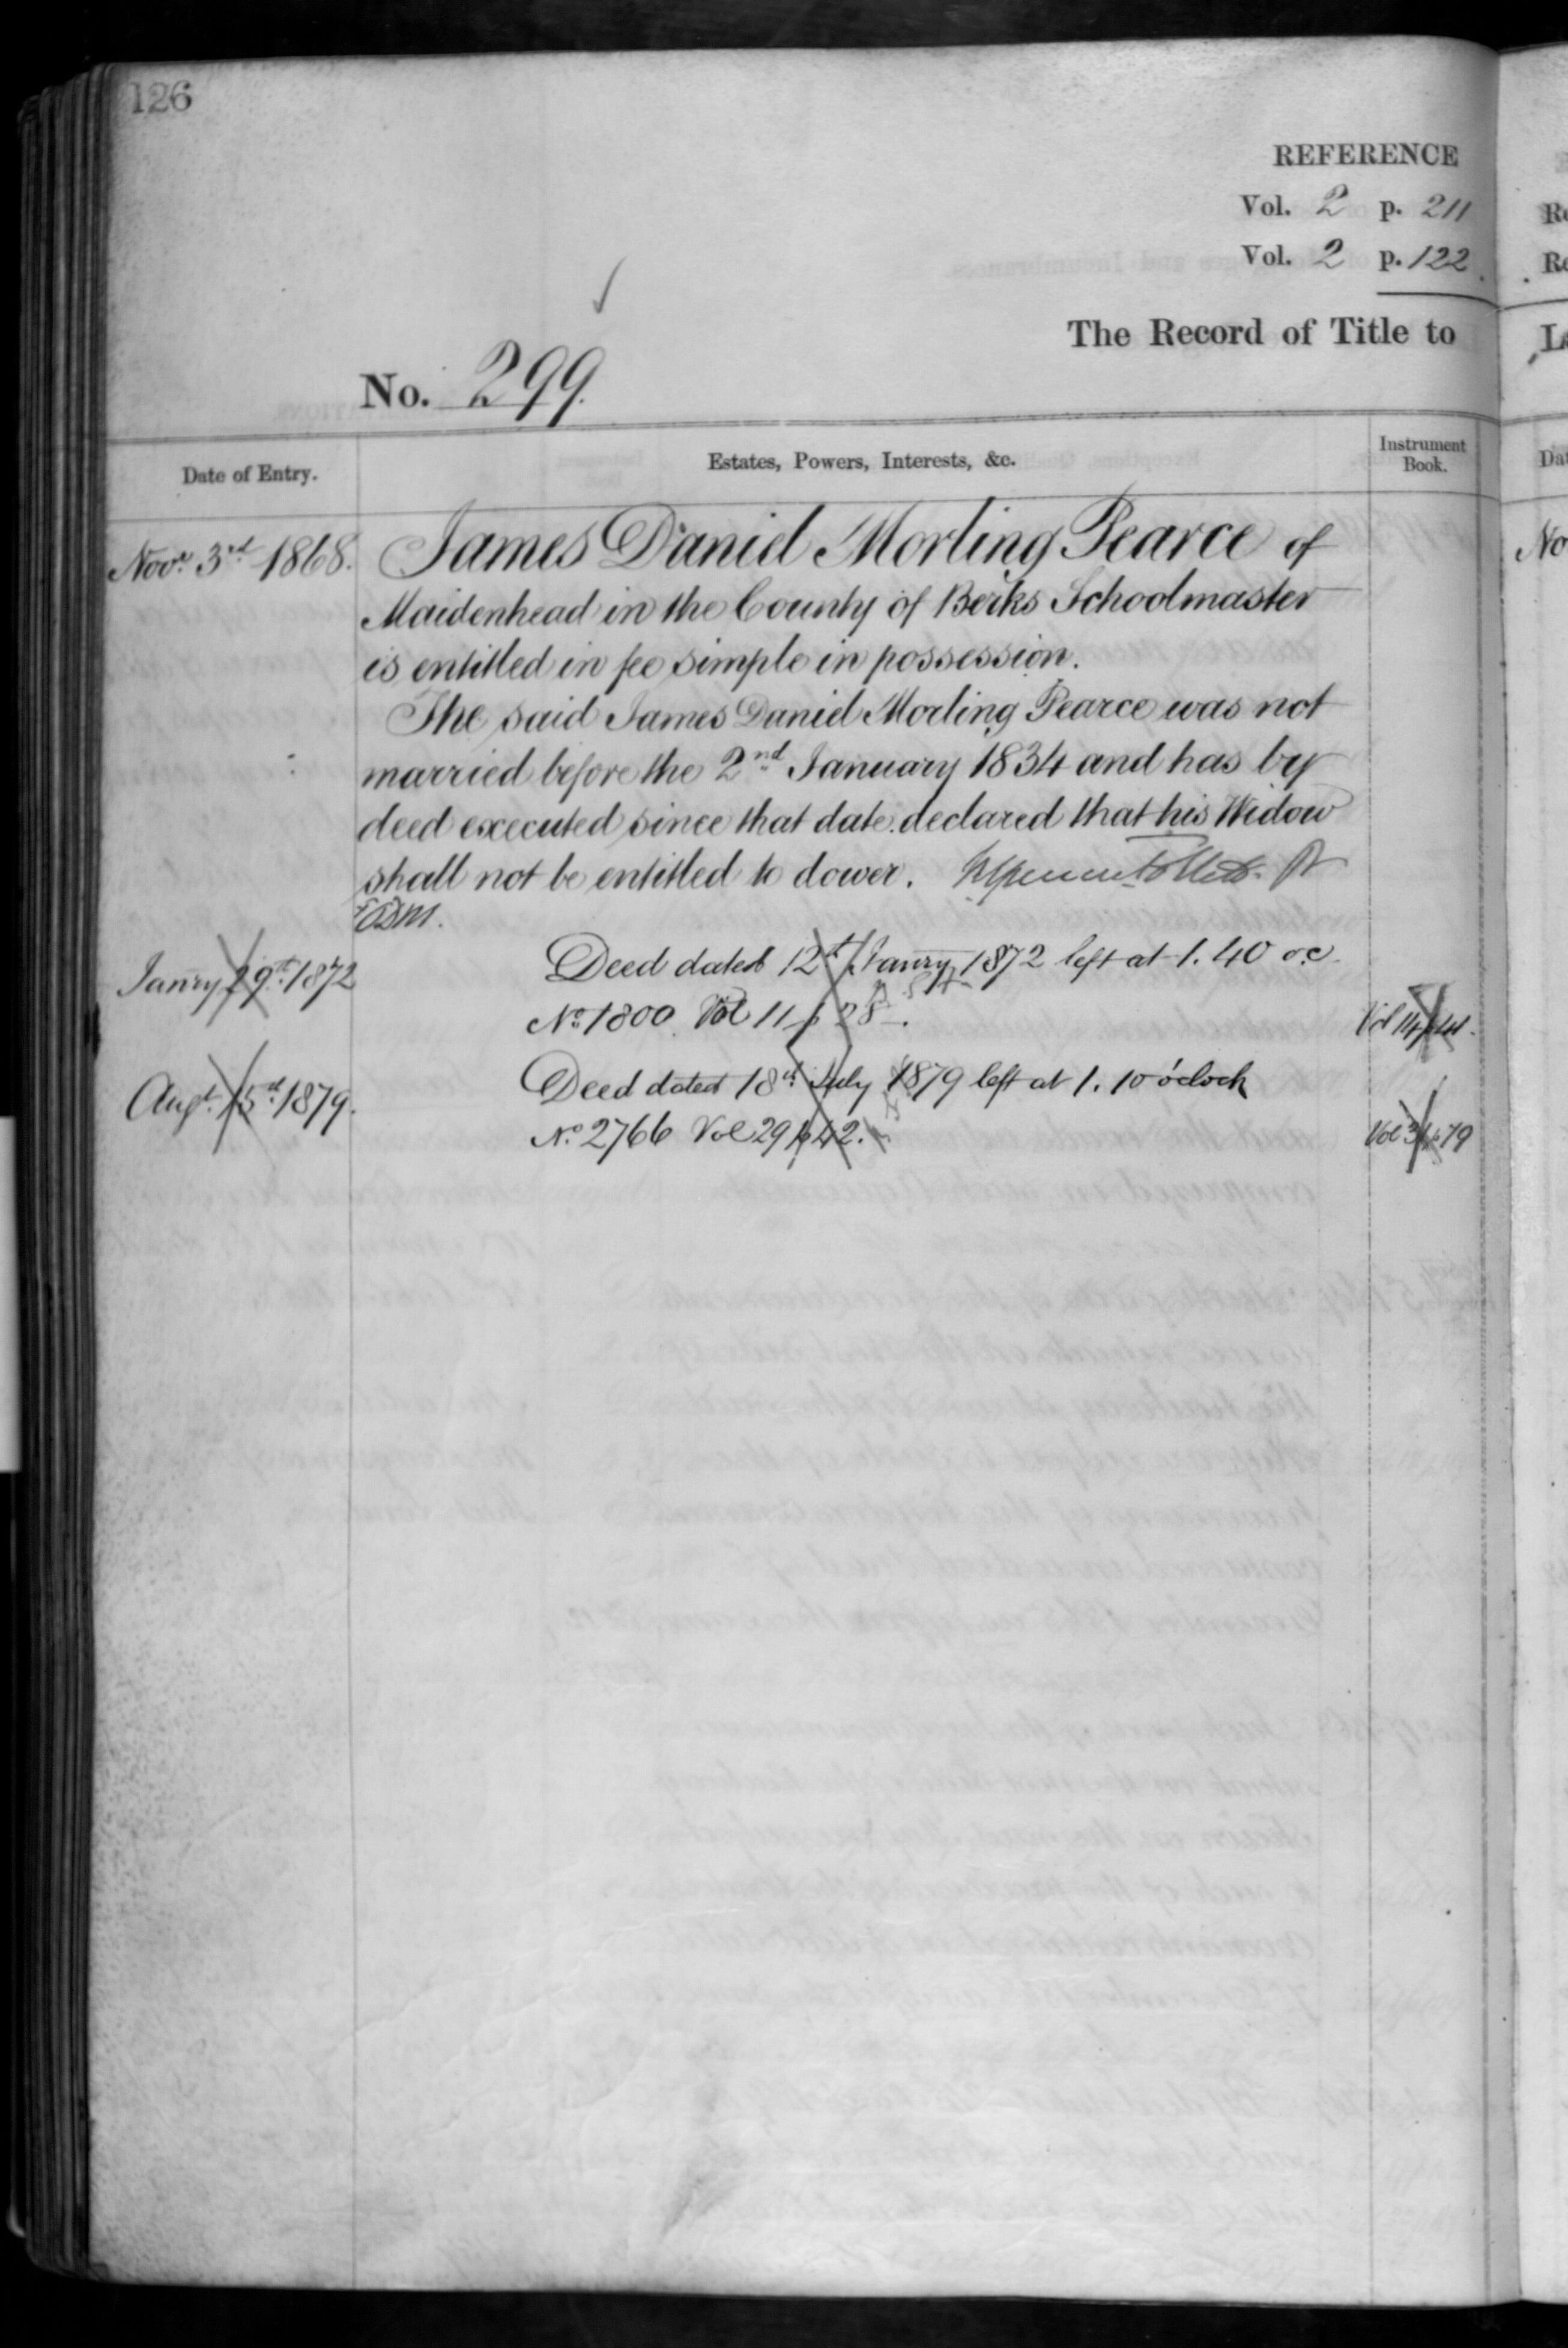 126
REFERENCE
Vol. 2 p. 211
Vol. 2 p. 122
The Record of Title to
No. 299.
Date of Entry. Estates, Powers, Interests, &c. Instrument Book.
Novr. 3rd 1868. James Daniel Morling Pearce of
Maidenhead in the County of Berks Schoolmaster
is entitled in fee simple in possession.
The said James Daniel Morling Pearce was not
married before the 2nd January 1834 and has by
deed executed since that date declared that his Widow
shall not be entitled to dower.
Janry 29th 1872 Deed dated 12th Janry 1872 left at 1.40 o.c.
No. 1800 Vol 11 p 28. Vol 14
Augt. 15th 1879. Deed dated 18th July 1879 left at 1.10 o'clock
No. 2766 Vol 29 p 42. Vol 79